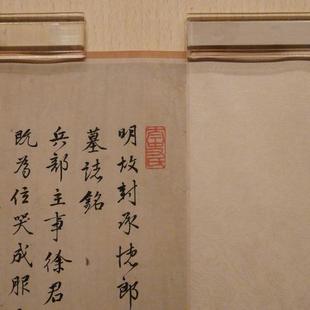 明故封承德郎
兵部主事徐君
墓志銘
既為位哭成服